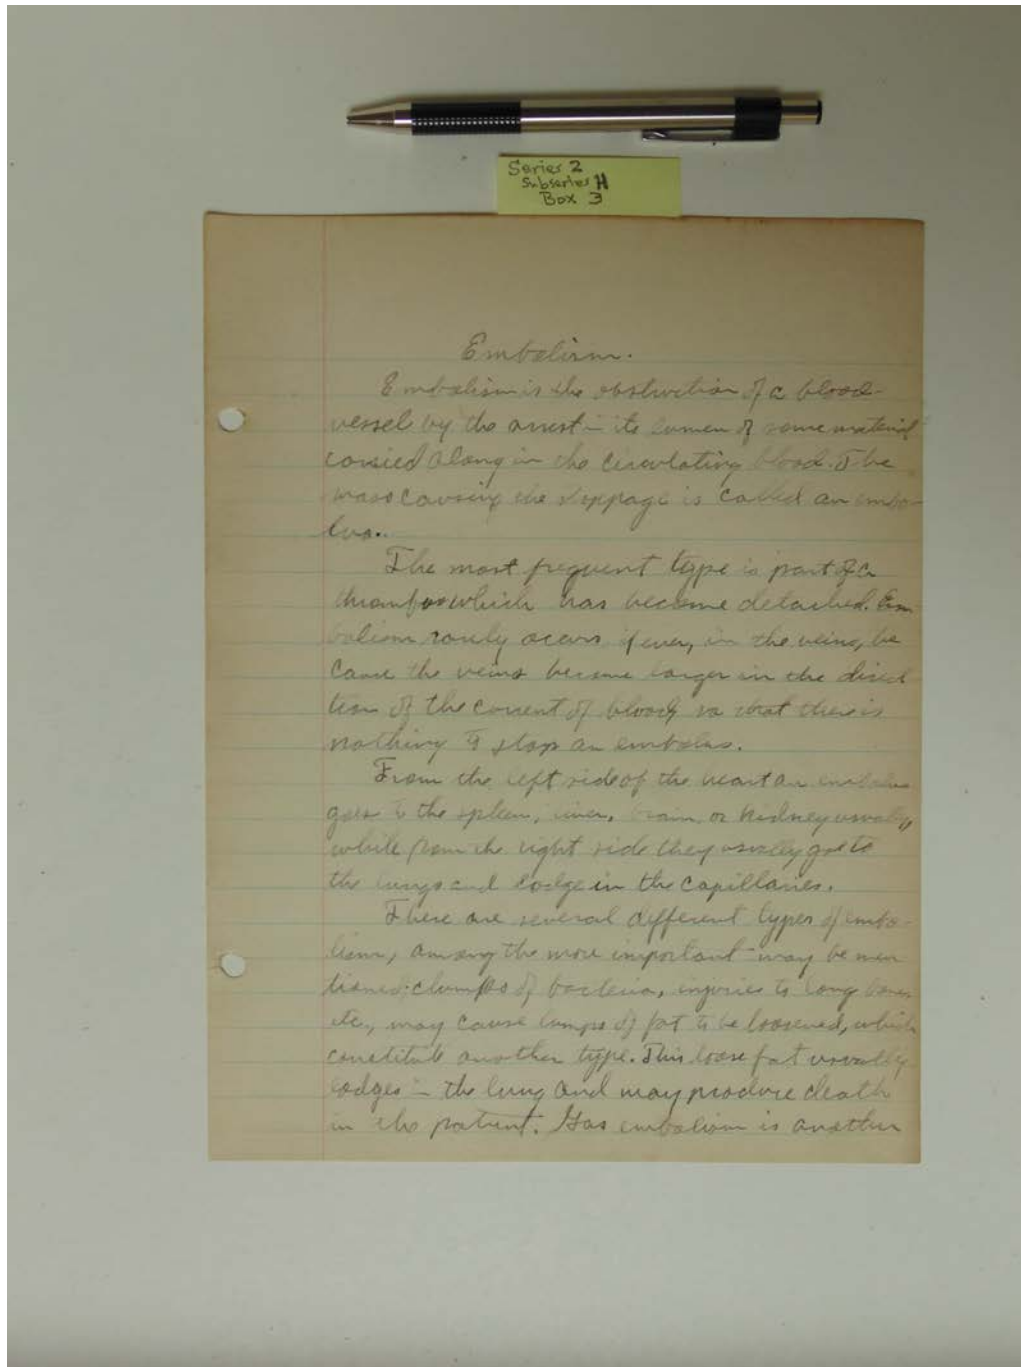 Series 2
Subseries H
Box 3
Embolism.
Embolism is the obstruction of a blood-
vessel by the arrest in its lumen of some material
carried along in the circulating blood. The
mass causing the stoppage is called an embo-
lus.
The most frequent type is part of a
thrombus which has become detached. Em
bolism rarely occurs if ever, in the veins, be
cause the veins become larger in the direc
tion of the current of blood, so that there is
nothing to stop an embolus.
From the left side of the heart an embolus
goes to the spleen, liver, brain, or kidney usually,
while from the right side they usually go to
the lungs and lodge in the capillaries.
There are several different types of embo-
lism, among the more important may be men
tioned; clumps of bacteria, injuries to long bones
etc., may cause lumps of fat to be loosened, which
constitute another type. This loose fat usually
lodges in the lung and may produce death
in the patient. Gas embolism is another